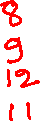 8
9
12
11